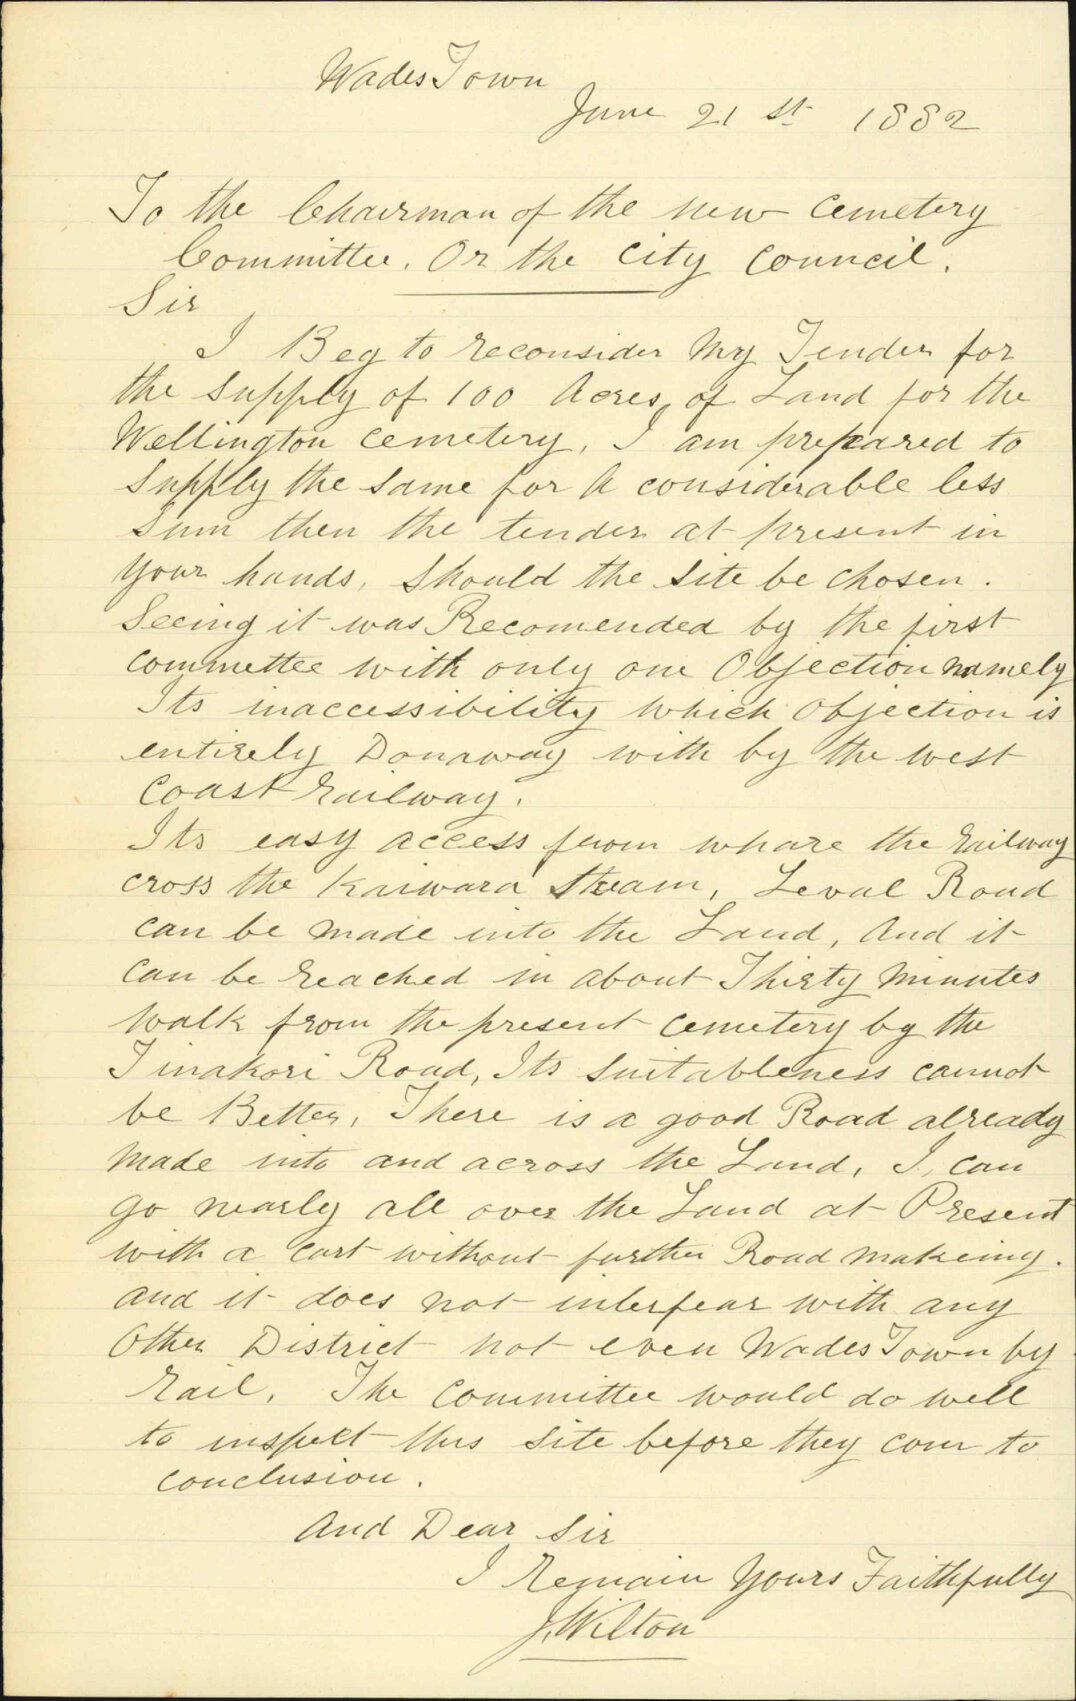 WadesTown
June 21 st 1882
To the Chairman of the new cemetery
Committee. Or the City Council.
Sir
I Beg to reconsider My Tender for
the Supply of 100 Acres of Land for the
Wellington cemetery, I am prepared to
Supply the Same for A considerable less
Sum then the tender at present in
your hands, Should the Site be chosen.
Seeing it was Recomended by the first
committee with only one Objection namely
Its inaccessibility which Objection is
entirely Donaway with by the west
Coast Railway.
Its easy access from whare the Railway
cross the Kaiwara Stream, Leval Road
can be made into the Land, And it
can be reached in about Thirty Minutes
walk from the present cemetery by the
Tinakori Road, Its Suitableness cannot
be Better, There is a good Road already
Made into and across the Land, I, can
go nearly all over the Land at Present
with a cart without further Road makeing.
and it does not interfear with any
Other District not even WadesTown by
rail. The Committee would do well
to inspect this Site before they com to
conclusion.
And Dear Sir
I Remain Yours Faithfully
J. Wilton